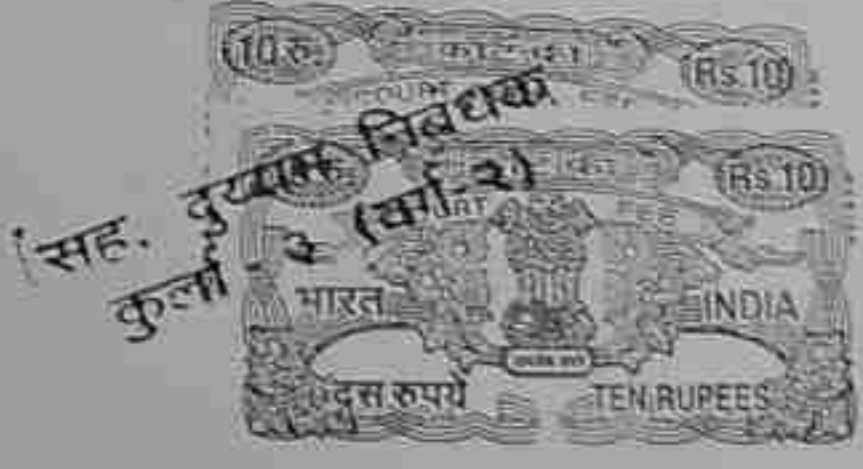 10 रु. Rs.10
COURT FEE
सह. दुय्यम निबंधक
कुर्ला - ३ (वर्ग-२)
Rs.10
भारत INDIA
दस रुपये TEN RUPEES